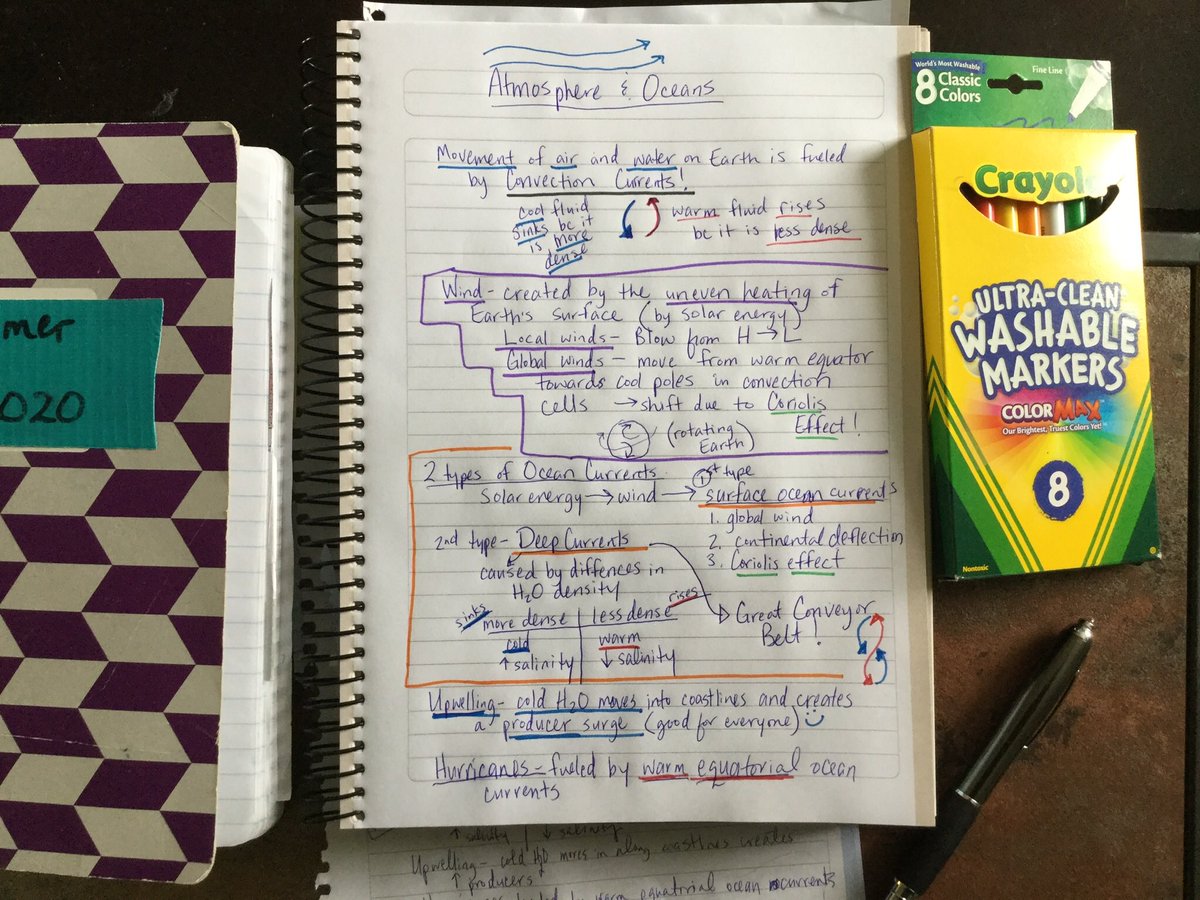 Atmosphere & Oceans
Movement of air and water on Earth is fueled
by Convection Currents!
cool fluid
sinks bc it
is more
dense
warm fluid rises
bc it is less dense
Wind- created by the uneven heating of
Earth's surface (by solar energy)
Local winds- Blow from H → L
Global winds- move from warm equator
towards cool poles in convection
cells → shift due to Coriolis
Effect!
(rotating
Earth)
2 types of Ocean Currents
Solar energy → wind →
1 1st type
surface ocean currents
1. global wind
2. continental deflection
3. Coriolis effect
2nd type- Deep Currents
caused by diffences in
H2O density
sinks
more dense
cold
↑ salinity
less dense
rises
warm
↓ salinity
Great Conveyor
Belt!
Upwelling- cold H2O moves into coastlines and creates
a producer surge (good for everyone)
Hurricanes- fueled by warm equatorial ocean
currents
↑ salinity ↓ salinity
Upwelling- cold H2O moves in along coastlines creates
↑ producers
warm equatorial ocean currents
mer
020
World's Most Washable
8 Classic
Colors
Fine Line
Crayol
ULTRA-CLEAN
WASHABLE
MARKERS
COLOR MAX
Our Brightest, Truest Colors Yet!
8
Nontoxic